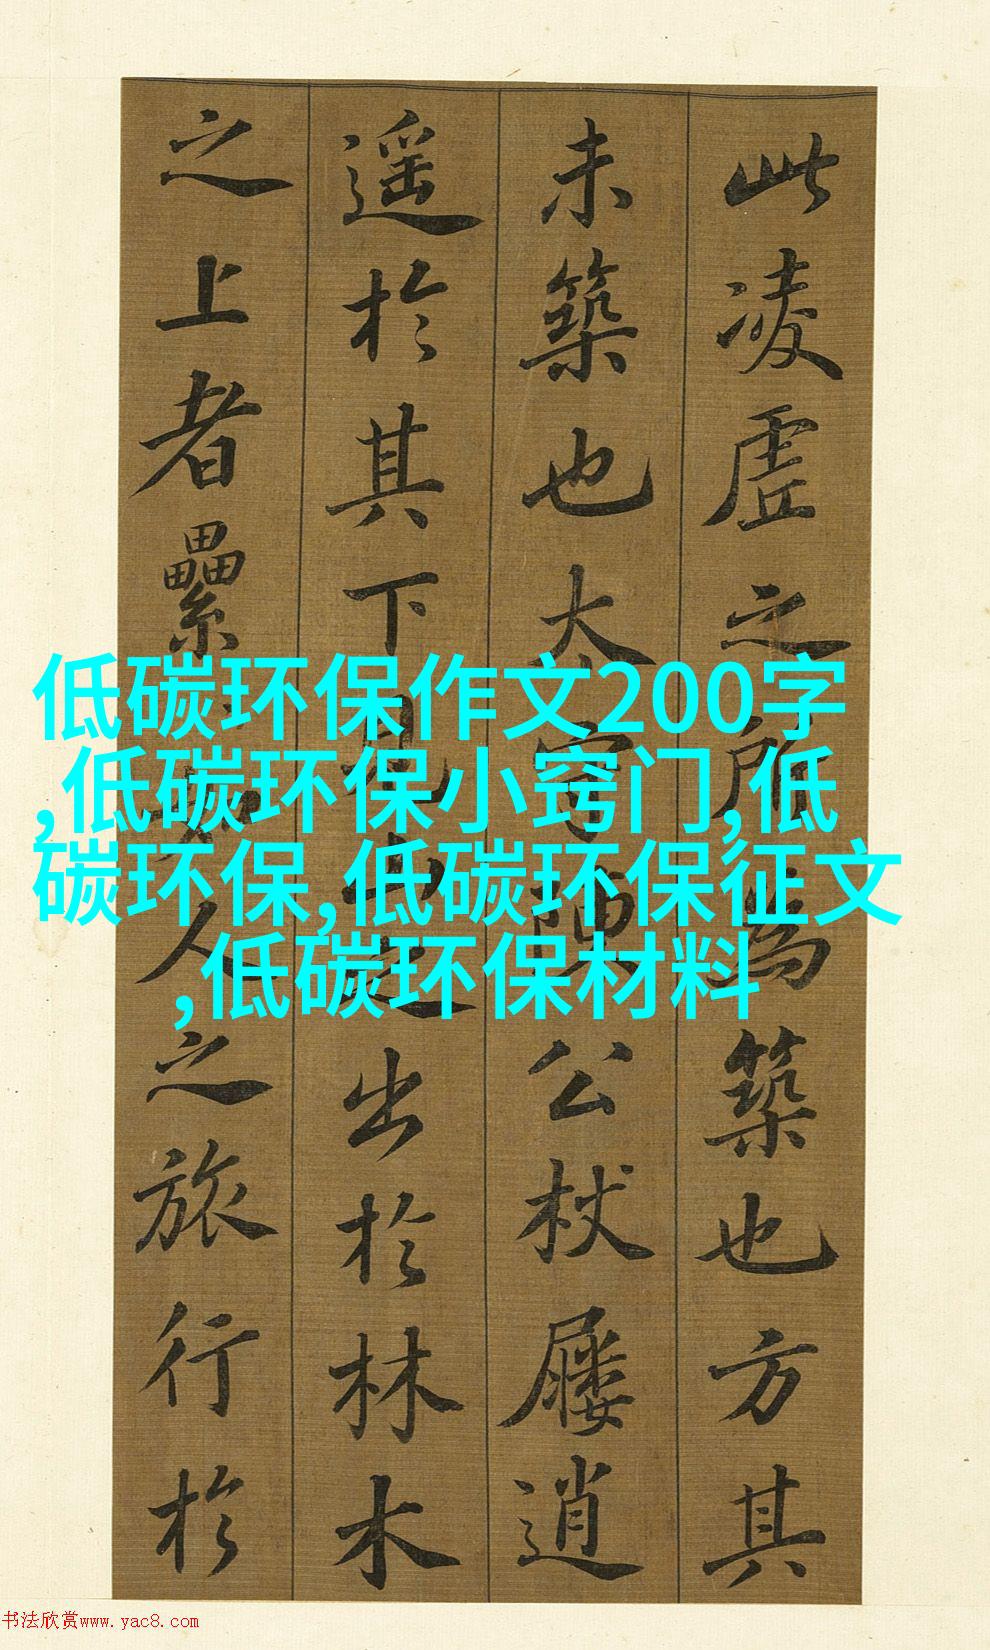 此凌虚之所為築也方其
未築也太守陳公杖屨逍
遥於其下見山之出於林木
之上者纍纍如人之旅行於
低碳环保作文200字
,低碳环保小窍门,低
碳环保,低碳环保征文
,低碳环保材料
书法欣赏www.yac8.com